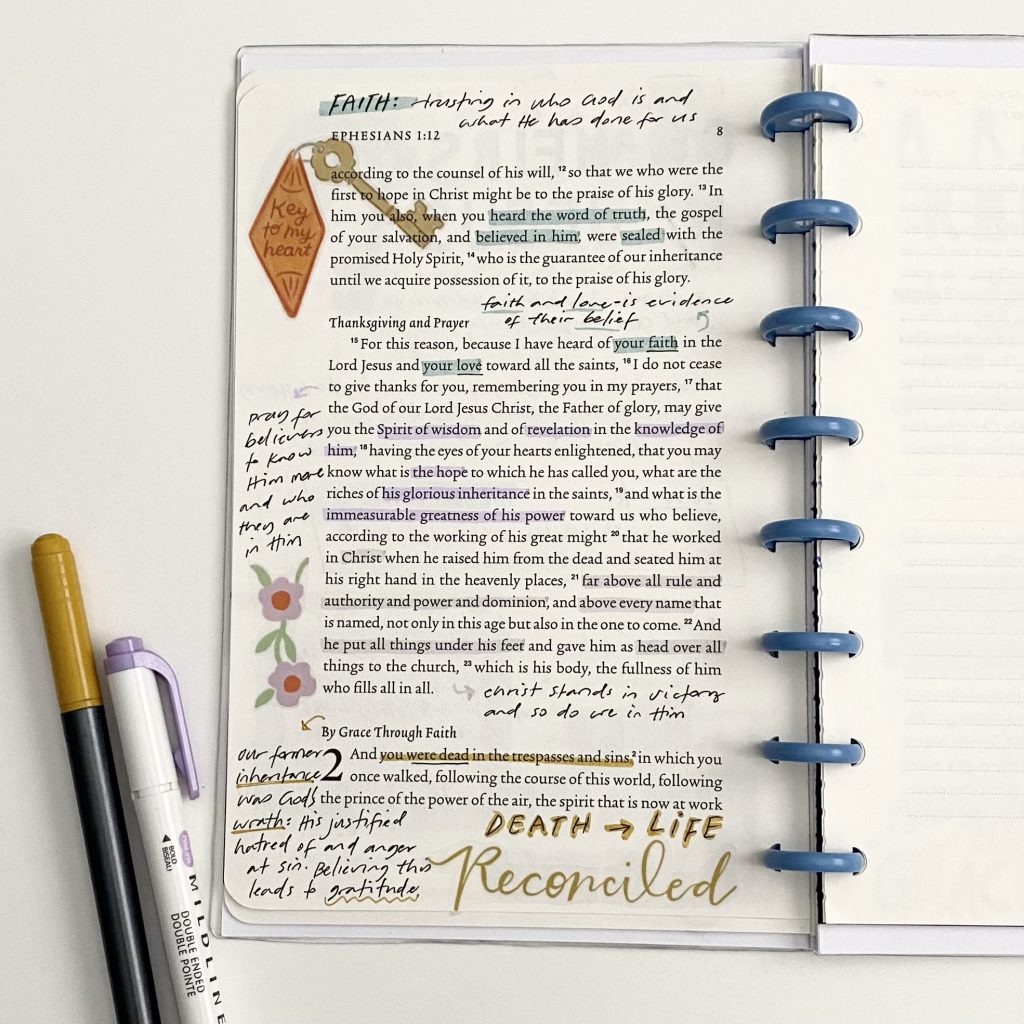 FAITH: trusting in who God is and
what He has done for us
EPHESIANS 1:12 8
Key
to my
heart
according to the counsel of his will, ¹²so that we who were the
first to hope in Christ might be to the praise of his glory. ¹³In
him you also, when you heard the word of truth, the gospel
of your salvation, and believed in him, were sealed with the
promised Holy Spirit, ¹⁴who is the guarantee of our inheritance
until we acquire possession of it, to the praise of his glory.
faith and love-is evidence
of their belief
Thanksgiving and Prayer
¹⁵For this reason, because I have heard of your faith in the
Lord Jesus and your love toward all the saints, ¹⁶I do not cease
to give thanks for you, remembering you in my prayers, ¹⁷that
the God of our Lord Jesus Christ, the Father of glory, may give
you the Spirit of wisdom and of revelation in the knowledge of
him, ¹⁸having the eyes of your hearts enlightened, that you may
know what is the hope to which he has called you, what are the
riches of his glorious inheritance in the saints, ¹⁹and what is the
immeasurable greatness of his power toward us who believe,
according to the working of his great might ²⁰that he worked
in Christ when he raised him from the dead and seated him at
his right hand in the heavenly places, ²¹far above all rule and
authority and power and dominion, and above every name that
is named, not only in this age but also in the one to come. ²²And
he put all things under his feet and gave him as head over all
things to the church, ²³which is his body, the fullness of him
who fills all in all.
pray for
believers
to know
Him more
and who
they are
in Him
christ stands in victory
and so do we in Him
By Grace Through Faith
2 And you were dead in the trespasses and sins, ²in which you
once walked, following the course of this world, following
the prince of the power of the air, the spirit that is now at work
our former
inheritance
was God's
wrath: His justified
hatred of and anger
at sin. Believing this
leads to gratitude.
DEATH → LIFE
Reconciled
BOLD
BISEAU
MILDLINE
DOUBLE ENDED
DOUBLE POINTE